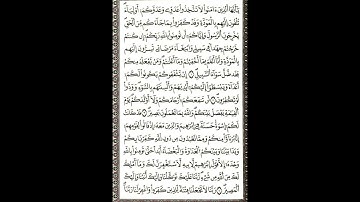 يَٰٓأَيُّهَا ٱلَّذِينَ ءَامَنُوا۟ لَا تَتَّخِذُوا۟ عَدُوِّى وَعَدُوَّكُمْ أَوْلِيَآءَ
تُلْقُونَ إِلَيْهِم بِٱلْمَوَدَّةِ وَقَدْ كَفَرُوا۟ بِمَا جَآءَكُم مِّنَ ٱلْحَقِّ
يُخْرِجُونَ ٱلرَّسُولَ وَإِيَّاكُمْ أَن تُؤْمِنُوا۟ بِٱللَّهِ رَبِّكُمْ إِن كُنتُمْ
خَرَجْتُمْ جِهَٰدًا فِى سَبِيلِى وَٱبْتِغَآءَ مَرْضَاتِى تُسِرُّونَ إِلَيْهِم
بِٱلْمَوَدَّةِ وَأَنَا۠ أَعْلَمُ بِمَآ أَخْفَيْتُمْ وَمَآ أَعْلَنتُمْ وَمَن يَفْعَلْهُ مِنكُمْ
فَقَدْ ضَلَّ سَوَآءَ ٱلسَّبِيلِ ١ إِن يَثْقَفُوكُمْ يَكُونُوا۟ لَكُمْ
أَعْدَآءً وَيَبْسُطُوٓا۟ إِلَيْكُمْ أَيْدِيَهُمْ وَأَلْسِنَتَهُم بِٱلسُّوٓءِ وَوَدُّوا۟
لَوْ تَكْفُرُونَ ٢ لَن تَنفَعَكُمْ أَرْحَامُكُمْ وَلَآ أَوْلَٰدُكُمْ يَوْمَ
ٱلْقِيَٰمَةِ يَفْصِلُ بَيْنَكُمْ وَٱللَّهُ بِمَا تَعْمَلُونَ بَصِيرٌ ٣ قَدْ كَانَتْ
لَكُمْ أُسْوَةٌ حَسَنَةٌ فِىٓ إِبْرَٰهِيمَ وَٱلَّذِينَ مَعَهُۥٓ إِذْ قَالُوا۟ لِقَوْمِهِمْ
إِنَّا بُرَءَٰٓؤُا۟ مِنكُمْ وَمِمَّا تَعْبُدُونَ مِن دُونِ ٱللَّهِ كَفَرْنَا بِكُمْ
وَبَدَا بَيْنَنَا وَبَيْنَكُمُ ٱلْعَدَٰوَةُ وَٱلْبَغْضَآءُ أَبَدًا حَتَّىٰ تُؤْمِنُوا۟ بِٱللَّهِ
وَحْدَهُۥٓ إِلَّا قَوْلَ إِبْرَٰهِيمَ لِأَبِيهِ لَأَسْتَغْفِرَنَّ لَكَ وَمَآ أَمْلِكُ
لَكَ مِنَ ٱللَّهِ مِن شَىْءٍ رَّبَّنَا عَلَيْكَ تَوَكَّلْنَا وَإِلَيْكَ أَنَبْنَا وَإِلَيْكَ
ٱلْمَصِيرُ ٤ رَبَّنَا لَا تَجْعَلْنَا فِتْنَةً لِّلَّذِينَ كَفَرُوا۟ وَٱغْفِرْ لَنَا رَبَّنَآ